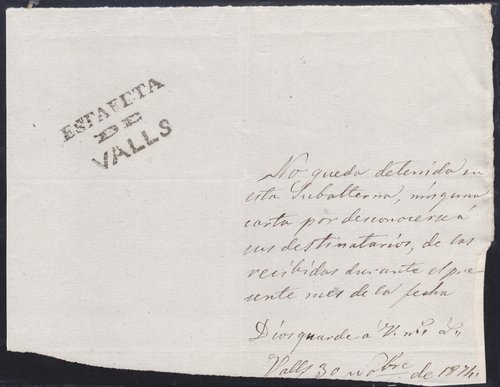 ESTAFETA
DE
VALLS
No queda detenida en
esta Subalterna, ninguna
carta por desconocerse á
sus destinatarios, de las
recibidas durante el pre-
sente mes de la fecha
Dios guarde á V. m.s a.s
Valls 30 Nobre de 1874.